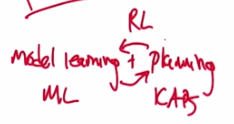 RL
model learning + planning
ML KAPS